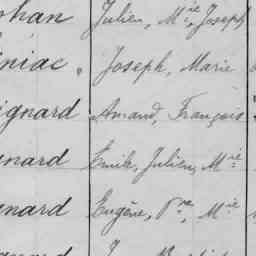 ohan Julien, Mie, Joseph
niac, Joseph, Marie
ignard Amand, François
nard Emile, Julien, Mie
nard Eugène, Pre, Mie